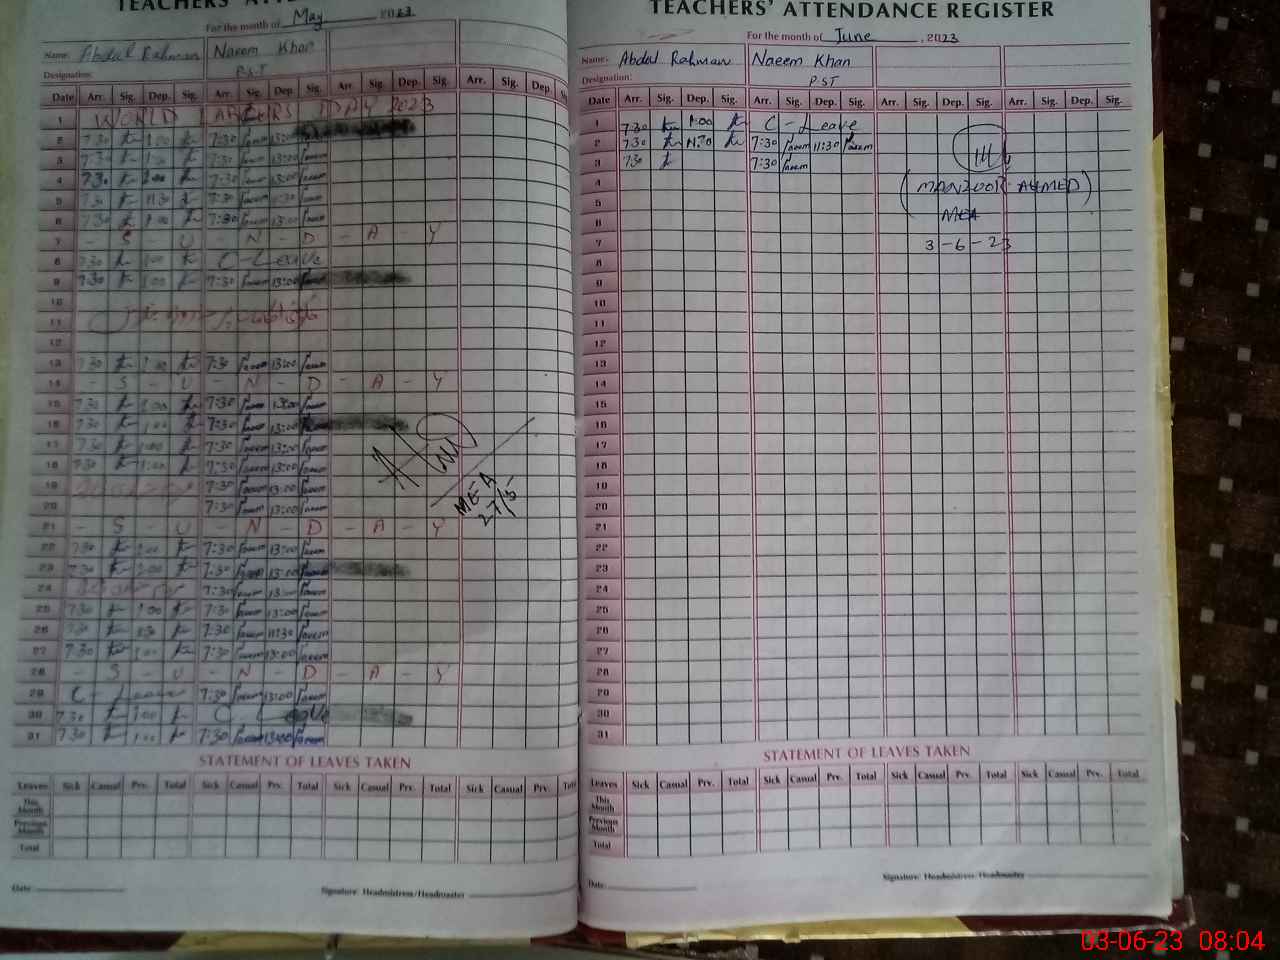 TEACHERS' ATTE
For the month of May 2023
Name: Abdul Rahman Naeem Khan
Designation: P.S.T
Date Arr. Sig. Dep. Sig. Arr. Sig. Dep. Sig. Arr. Sig. Dep. Sig. Arr. Sig. Dep. Sig.
1 WORLD LABERS DAY 2023
2 7:30 1:00 7:30 Naeem 13:00
3 7:30 1:00 7:30 Naeem 13:00 Naeem
4 7:30 1:00 7:30 Naeem 13:00 Naeem
5 7:30 11:30 7:30 Naeem 11:30 Naeem
6 7:30 1:00 7:30 Naeem 13:00 Naeem
7 - S - U - N - D - A - Y
8 7:30 1:00 C - Leave
9 7:30 1:00 7:30 Naeem 13:00 Naeem
10
11
12
13 7:30 1:00 7:30 Naeem 13:00 Naeem
14 - S - U - N - D - A - Y
15 7:30 1:00 7:30 Naeem 13:00 Naeem
16 7:30 1:00 7:30 Naeem 13:00
17 7:30 1:00 7:30 Naeem 13:00 Naeem
18 7:30 1:00 7:30 Naeem 13:00 Naeem
19 7:30 Naeem 13:00 Naeem
20 7:30 Naeem 13:00 Naeem
21 - S - U - N - D - A - Y
22 7:30 1:00 7:30 Naeem 13:00 Naeem
23 7:30 1:00 7:30 Naeem 13:00 Naeem
24 7:30 Naeem 13:00 Naeem
25 7:30 1:00 7:30 Naeem 13:00 Naeem
26 7:30 7:30 Naeem 11:30 Naeem
27 7:30 1:00 7:30 Naeem 13:00 Naeem
28 - S - U - N - D - A - Y
29 C - Leave 7:30 Naeem 13:00 Naeem
30 7:30 1:00 C Leave
31 7:30 1:00 7:30 Naeem 13:00 Naeem
MEA
27/5
STATEMENT OF LEAVES TAKEN
Leaves Sick Casual Prv. Total Sick Casual Prv. Total Sick Casual Prv. Total Sick Casual Prv. Total
This Month
Previous Month
Total
Date: Signature: Headmistress/Headmaster
TEACHERS' ATTENDANCE REGISTER
For the month of June, 2023
Name: Abdul Rahman Naeem Khan
Designation: P.S.T
Date Arr. Sig. Dep. Sig. Arr. Sig. Dep. Sig. Arr. Sig. Dep. Sig. Arr. Sig. Dep. Sig.
1 7:30 1:00 C - Leave
2 7:30 11:30 7:30 Naeem 11:30 Naeem
3 7:30 7:30 Naeem
4 (MANZOOR AHMED)
5
6 MEA
7 3-6-23
8
9
10
11
12
13
14
15
16
17
18
19
20
21
22
23
24
25
26
27
28
29
30
31
STATEMENT OF LEAVES TAKEN
Leaves Sick Casual Prv. Total Sick Casual Prv. Total Sick Casual Prv. Total Sick Casual Prv. Total
This Month
Previous Month
Total
Date: Signature: Headmistress/Headmaster
03-06-23 08:04